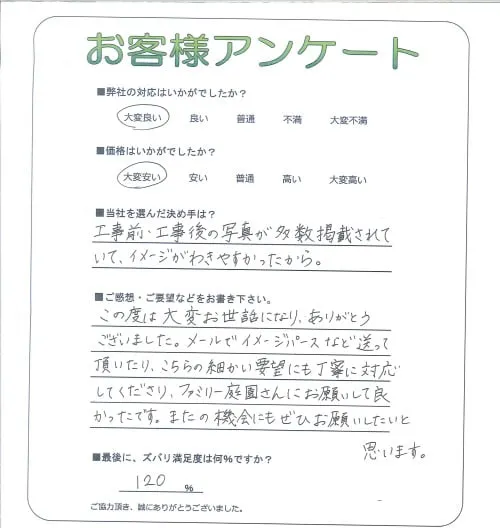 お客様アンケート
■弊社の対応はいかがでしたか？
大変良い 良い 普通 不満 大変不満
■価格はいかがでしたか？
大変安い 安い 普通 高い 大変高い
■当社を選んだ決め手は？
工事前・工事後の写真が多数掲載されて
いて、イメージがわきやすかったから。
■ご感想・ご要望などをお書き下さい。
この度は大変お世話になり、ありがとう
ございました。メールでイメージパースなど送って
頂いたり、こちらの細かい要望にも丁寧に対応
してくださり、ファミリー庭園さんにお願いして良
かったです。またの機会にもぜひお願いしたいと
思います。
■最後に、ズバリ満足度は何％ですか？
120 %
ご協力頂き、誠にありがとうございました。